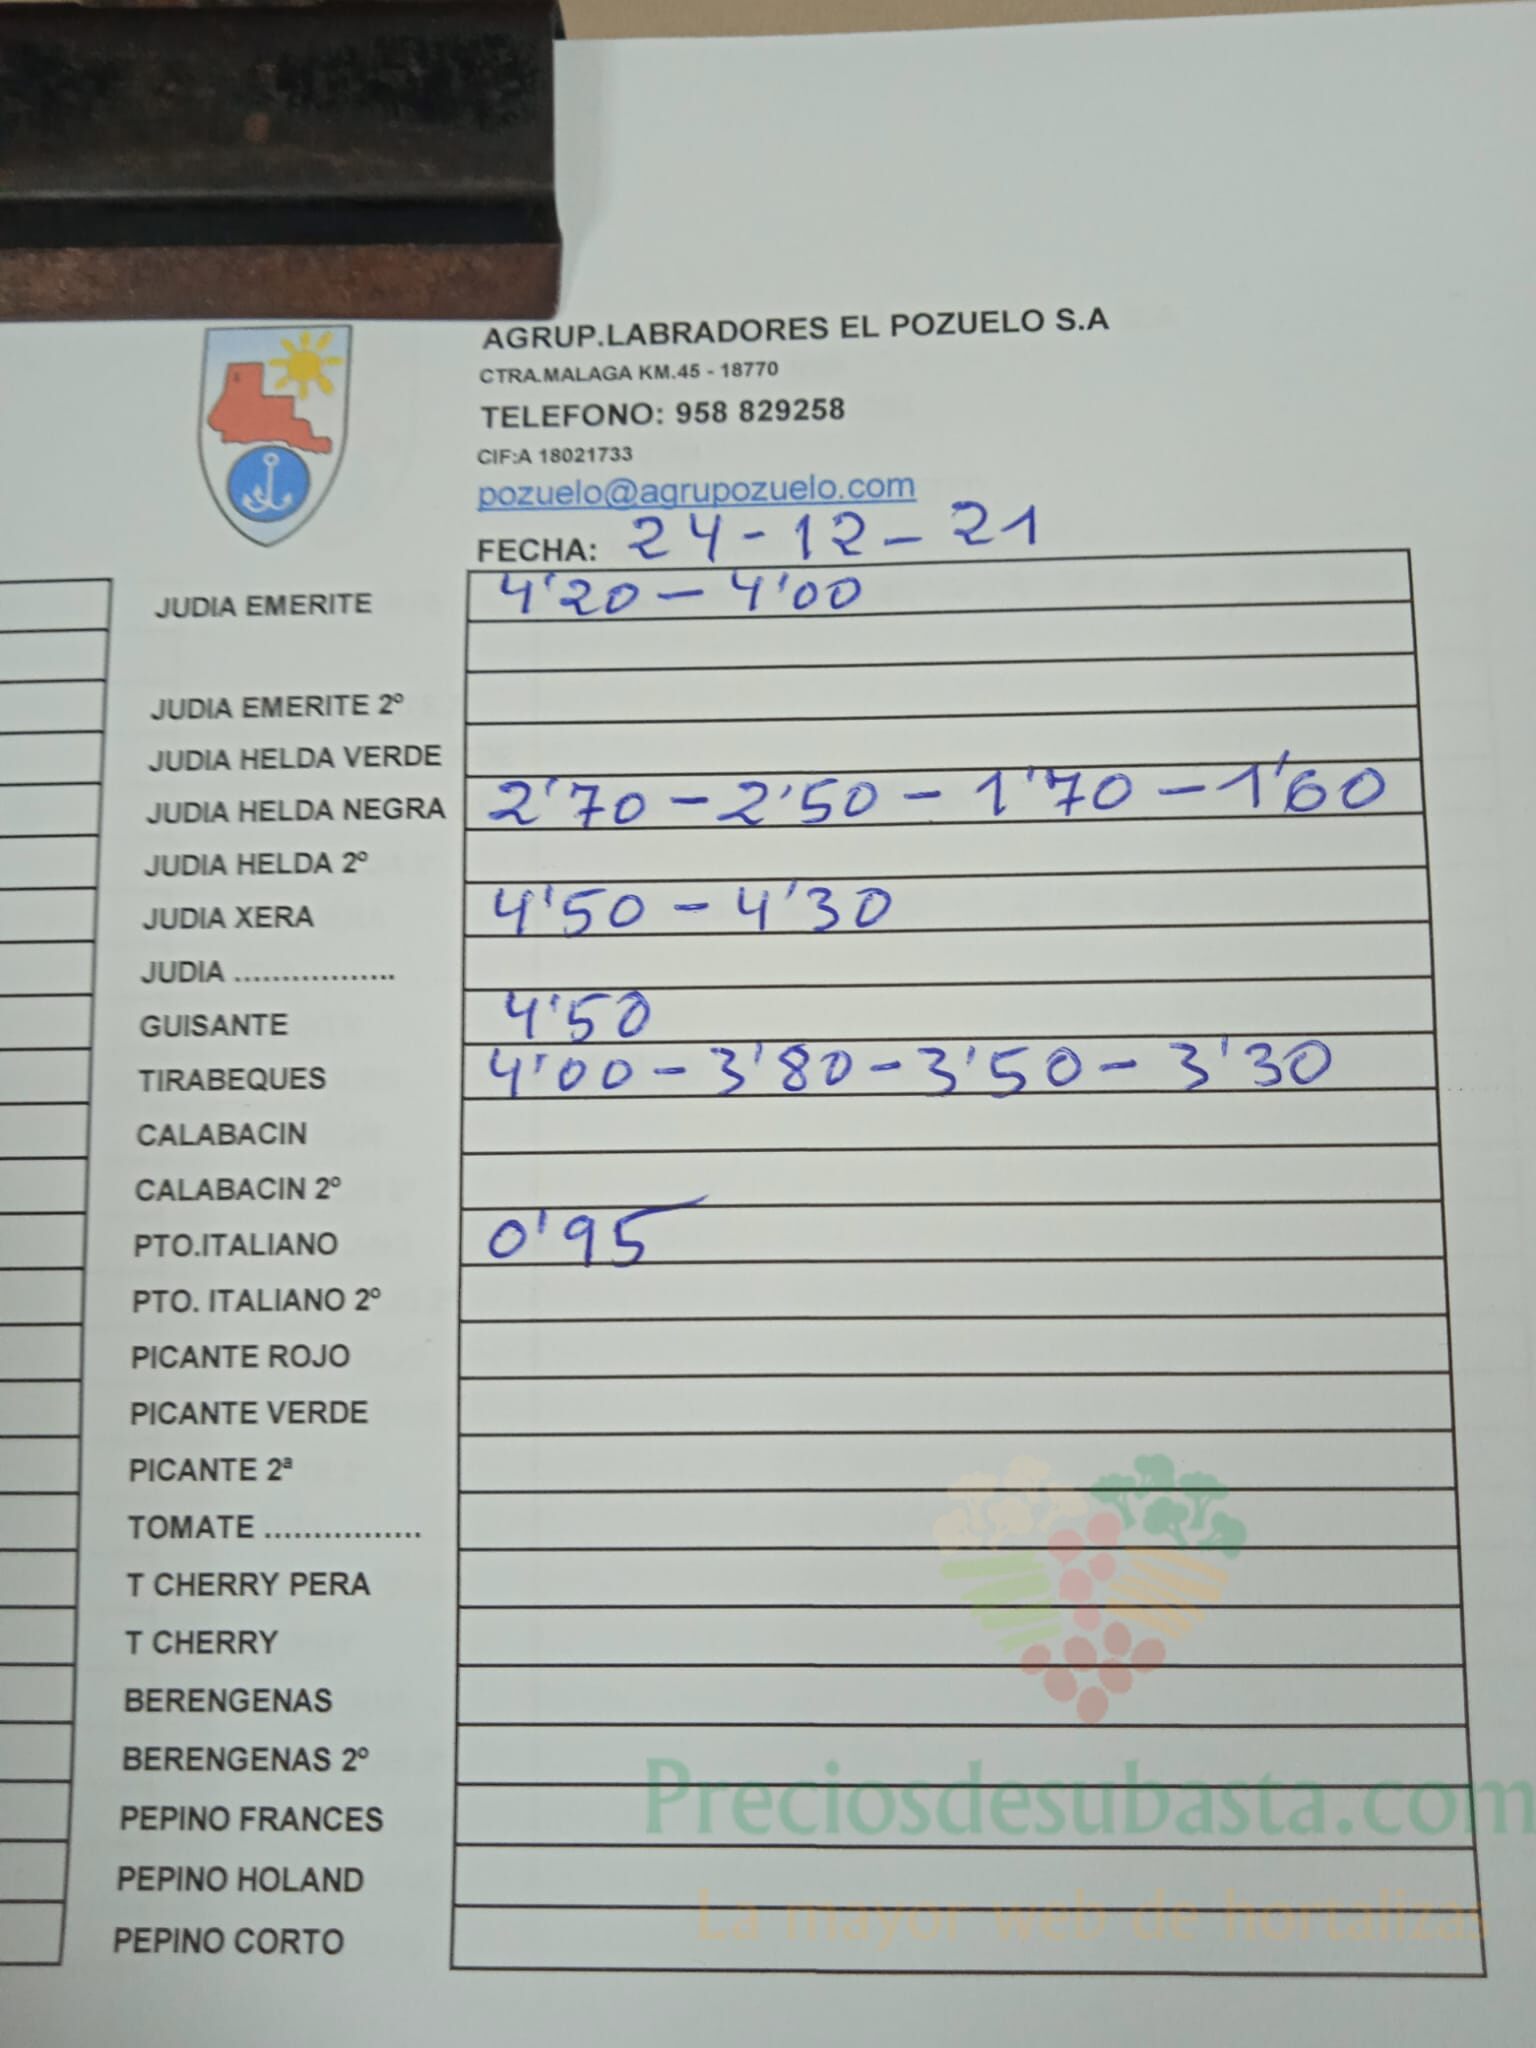 AGRUP.LABRADORES EL POZUELO S.A
CTRA.MALAGA KM.45 - 18770
TELEFONO: 958 829258
CIF:A 18021733
pozuelo@agrupozuelo.com
FECHA: 24-12-21
JUDIA EMERITE 4'20 - 4'00
JUDIA EMERITE 2º
JUDIA HELDA VERDE
JUDIA HELDA NEGRA 2'70 - 2'50 - 1'70 - 1'60
JUDIA HELDA 2º
JUDIA XERA 4'50 - 4'30
JUDIA .................
GUISANTE 4'50
TIRABEQUES 4'00 - 3'80 - 3'50 - 3'30
CALABACIN
CALABACIN 2º
PTO.ITALIANO 0'95
PTO. ITALIANO 2º
PICANTE ROJO
PICANTE VERDE
PICANTE 2ª
TOMATE ................
T CHERRY PERA
T CHERRY
BERENGENAS
BERENGENAS 2º
PEPINO FRANCES
PEPINO HOLAND
PEPINO CORTO
Preciosdesubasta.com
La mayor web de hortalizas